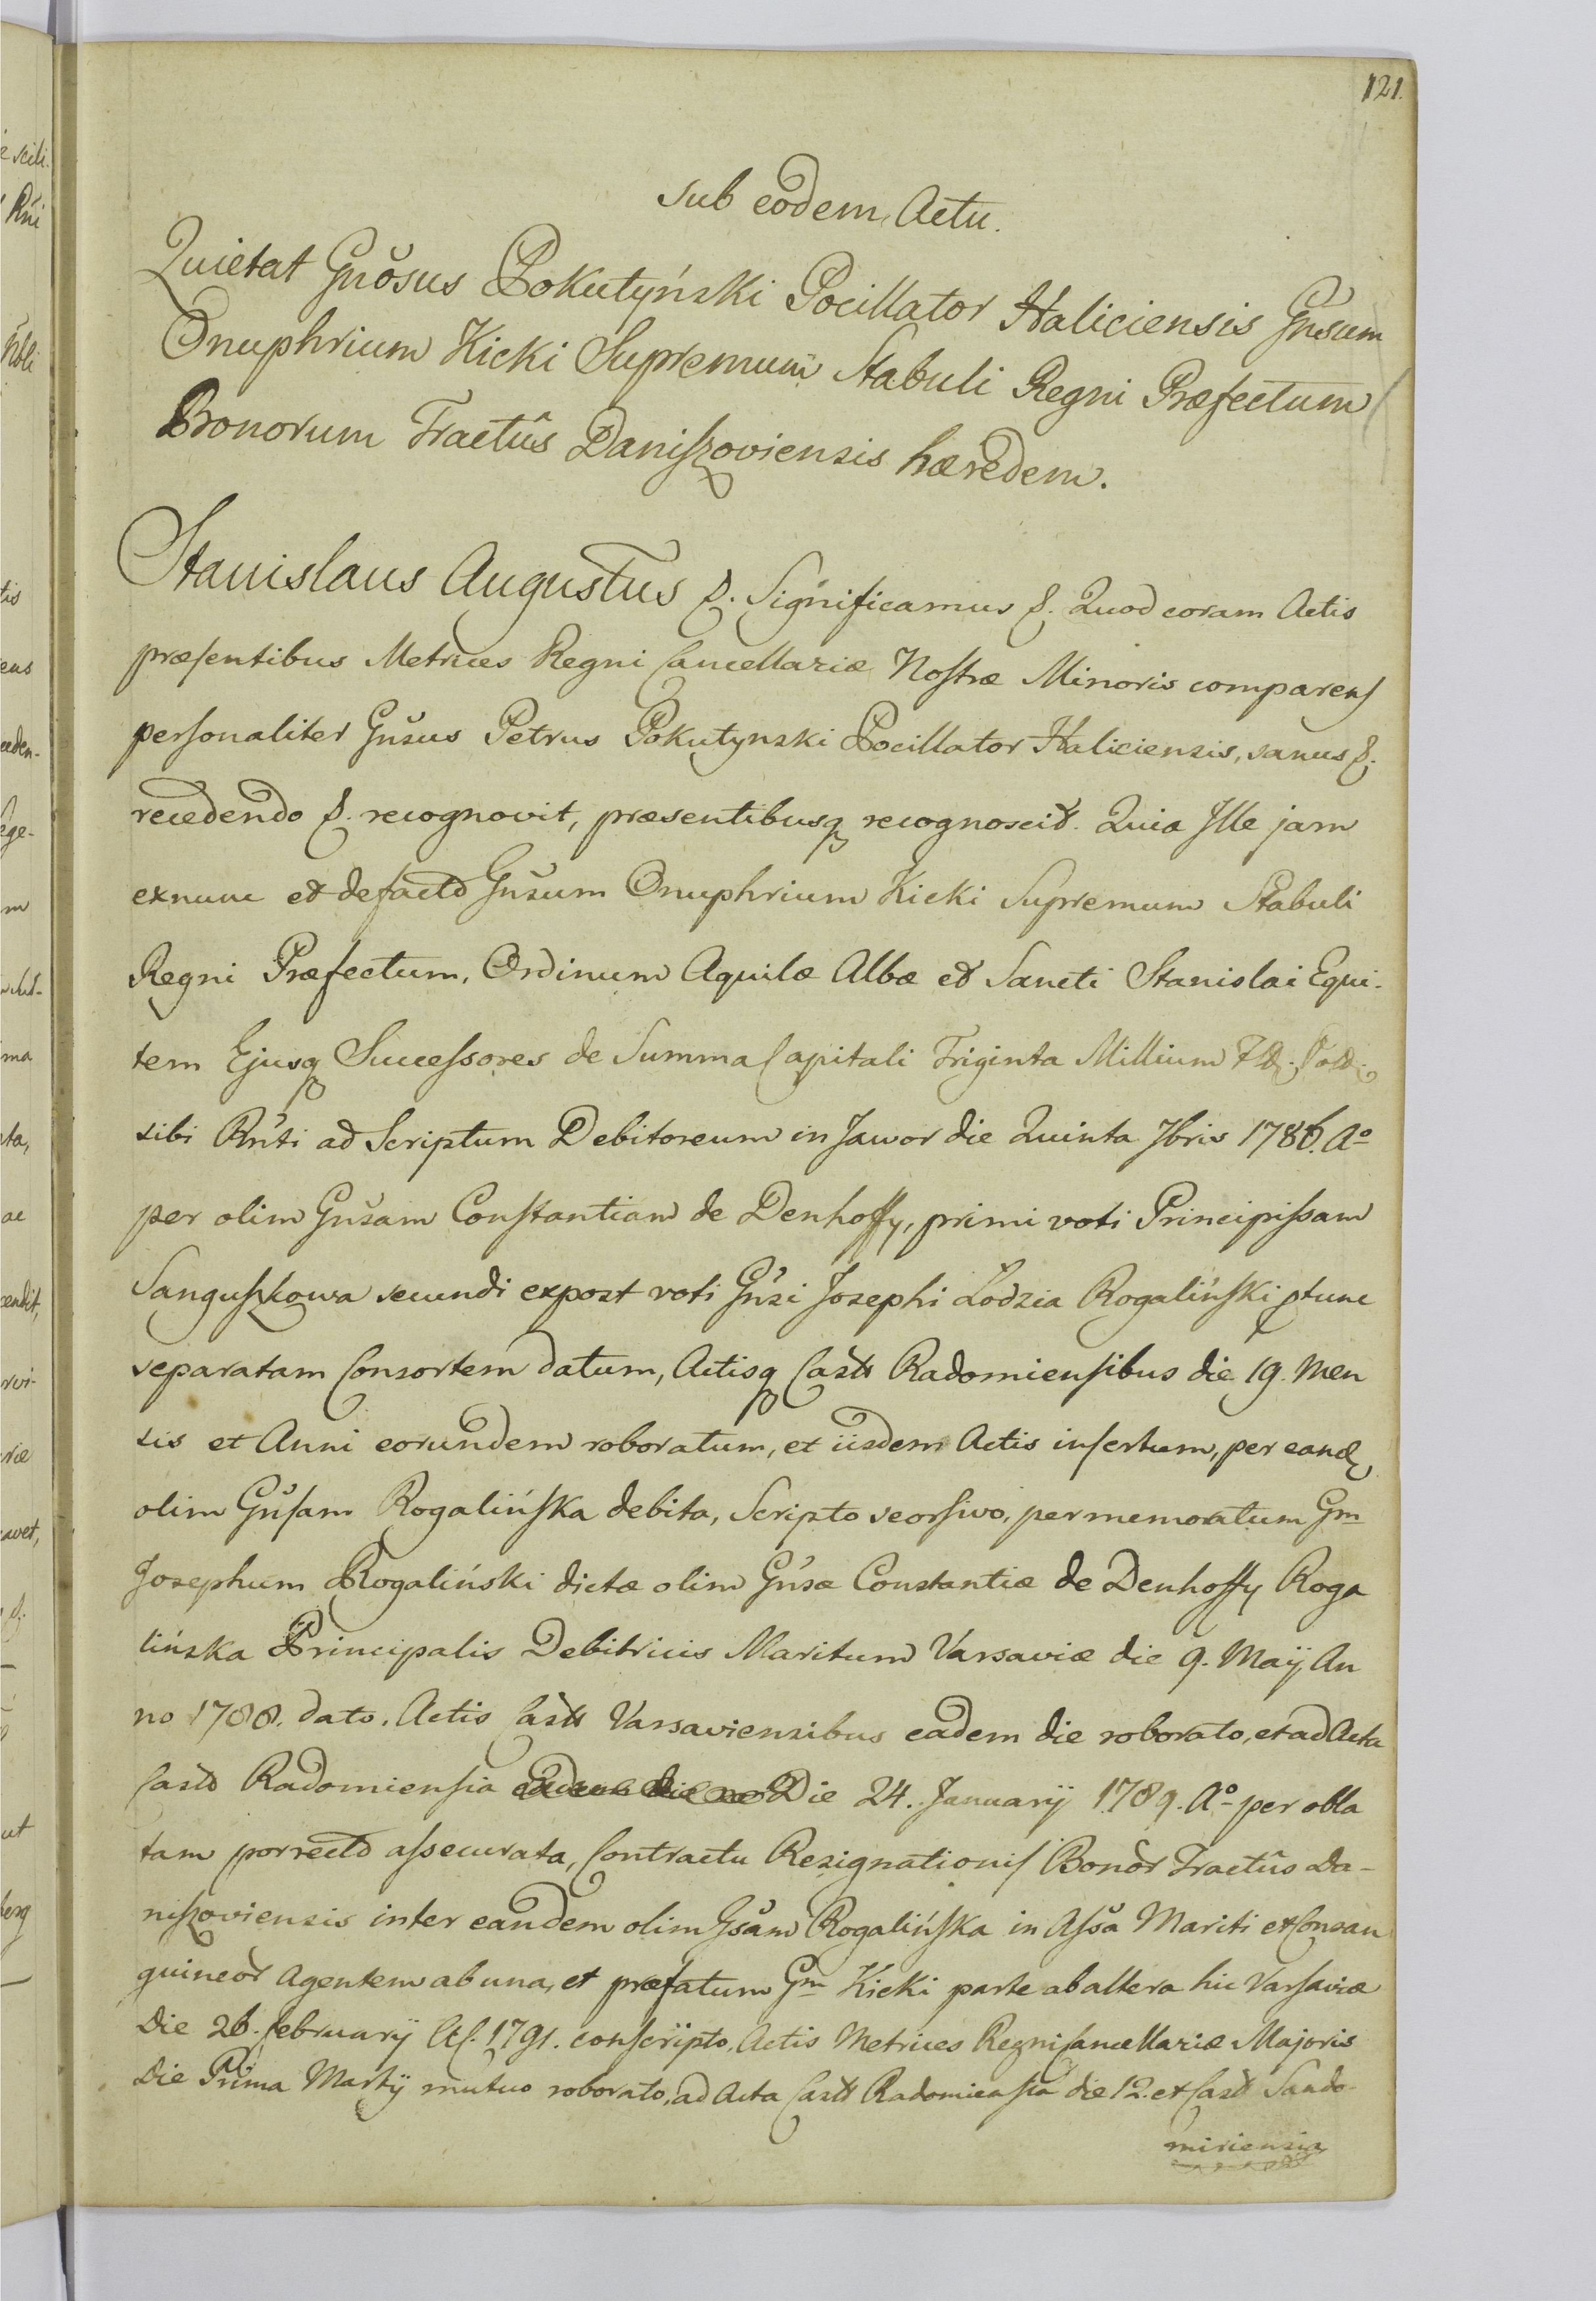 121.
Sub eodem Actu.
Quietat Gnŏsus Pokutyński Pocillator Haliciensis Gnsum
Onuphrium Kicki Supremum Stabuli Regni Præfectum
Bonorum Tractûs Daniſzoviensis hæredem.
Stanislaus Augustus &. Significamus &. Quod coram Actis
præſentibus Metrices Regni Cancellariæ Noſtræ Minoris comparenſ
perſonaliter Gnsus Petrus Pokutynski Pocillator Haliciensis, sanus &.
recedendo &. recognovit, præsentibusq recognoscit. Quia Ille jam
exnunc et defacto Gnsum Onuphrium Kicki Supremum Stabuli
Regni Præfectum, Ordinum Aquilæ Albæ et Sancti Stanislai Equi-
tem Ejusq Succeſsores de Summa Capitali Triginta Millium Fl. Pol.
sibi Rnti ad Scriptum Debitoreum in Jawor die Quinta Jbris 1786. Aº
per olim Gnsam Conſtantiam de Denhoffy, primi voti Principiſsam
Sanguſzkowa secundi expost voti Gnsi Josephi Łodzia Rogalińſki ptunc
separatam Consortem datum, Actisq Castr Radomienſibus die 19. Men
sis et Anni eorundem roboratum, et iisdem Actis inſertum, per eand
olim Gnſam Rogalińſka debita, Scripto seorſivo, per memoratum Gm
Josephum Rogaliński dictæ olim Gnsæ Constantiæ de Denhoffy Roga
lińska Principalis Debitricis Maritum Varsaviæ die 9. Maij An
no 1788. dato. Actis Castr Varsaviensibus eadem die roborato, et ad Acta
Castr Radomienſia Die 24. Januarij 1789. Aº per obla
tam porrecto aſsecurata, Contractu Resignationiſ Bonor Tractûs Da-
niſzoviensis inter eandem olim Gsam Rogalińſka in Aſsa Mariti et Consan
guineor Agentem ab una, et præfatum Gm Kicki parte ab altera hic Varſaviæ
Die 26. Februarij 1791. conſcripto, Actis Metrices Regni Cancellariæ Majoris
Die Prima Martij mutuo roborato, ad Acta Castr Radomienſia die 12. et Castr Sando-
miriensia